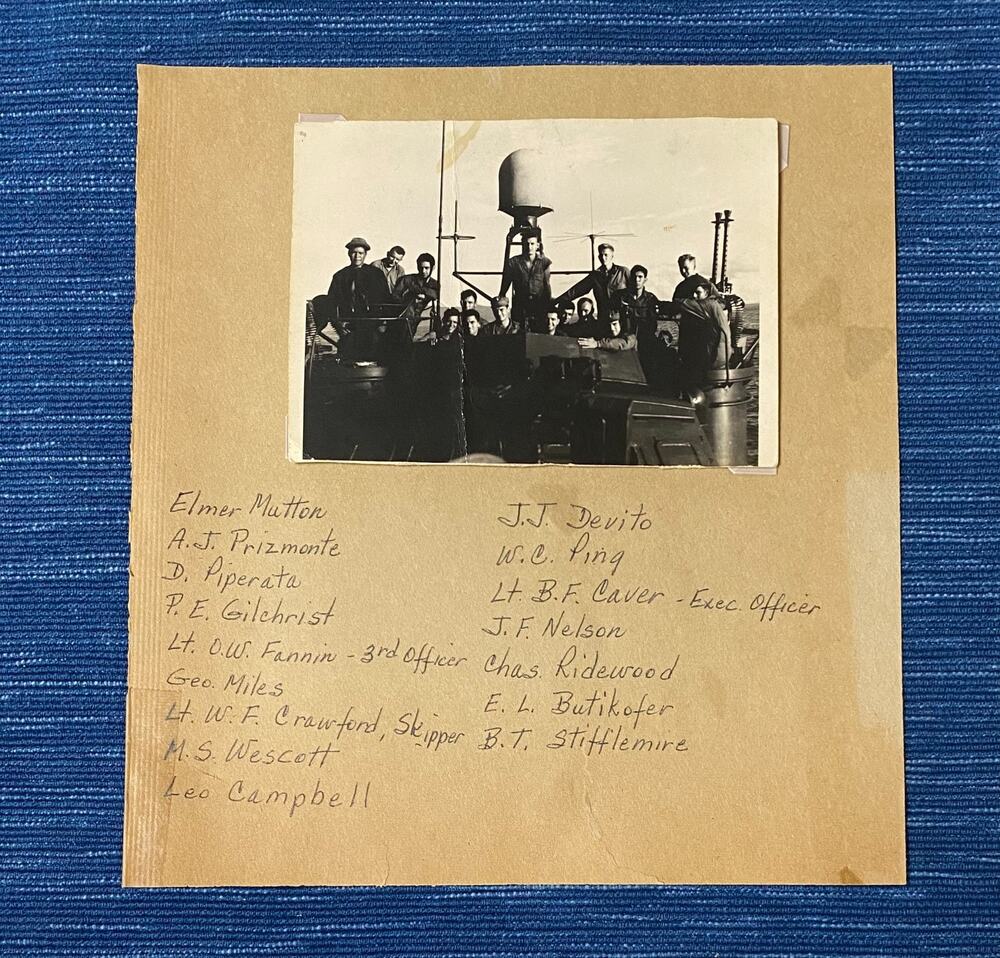 Elmer Mutton
A. J. Prizmonte
D. Piperata
P. E. Gilchrist
Lt. O.W. Fannin - 3rd Officer
Geo. Miles
Lt. W. F. Crawford, Skipper
M. S. Wescott
Leo Campbell
J. J. Devito
W. C. Ping
Lt. B. F. Caver - Exec. Officer
J. F. Nelson
Chas. Ridewood
E. L. Butikofer
B. T. Stifflemire